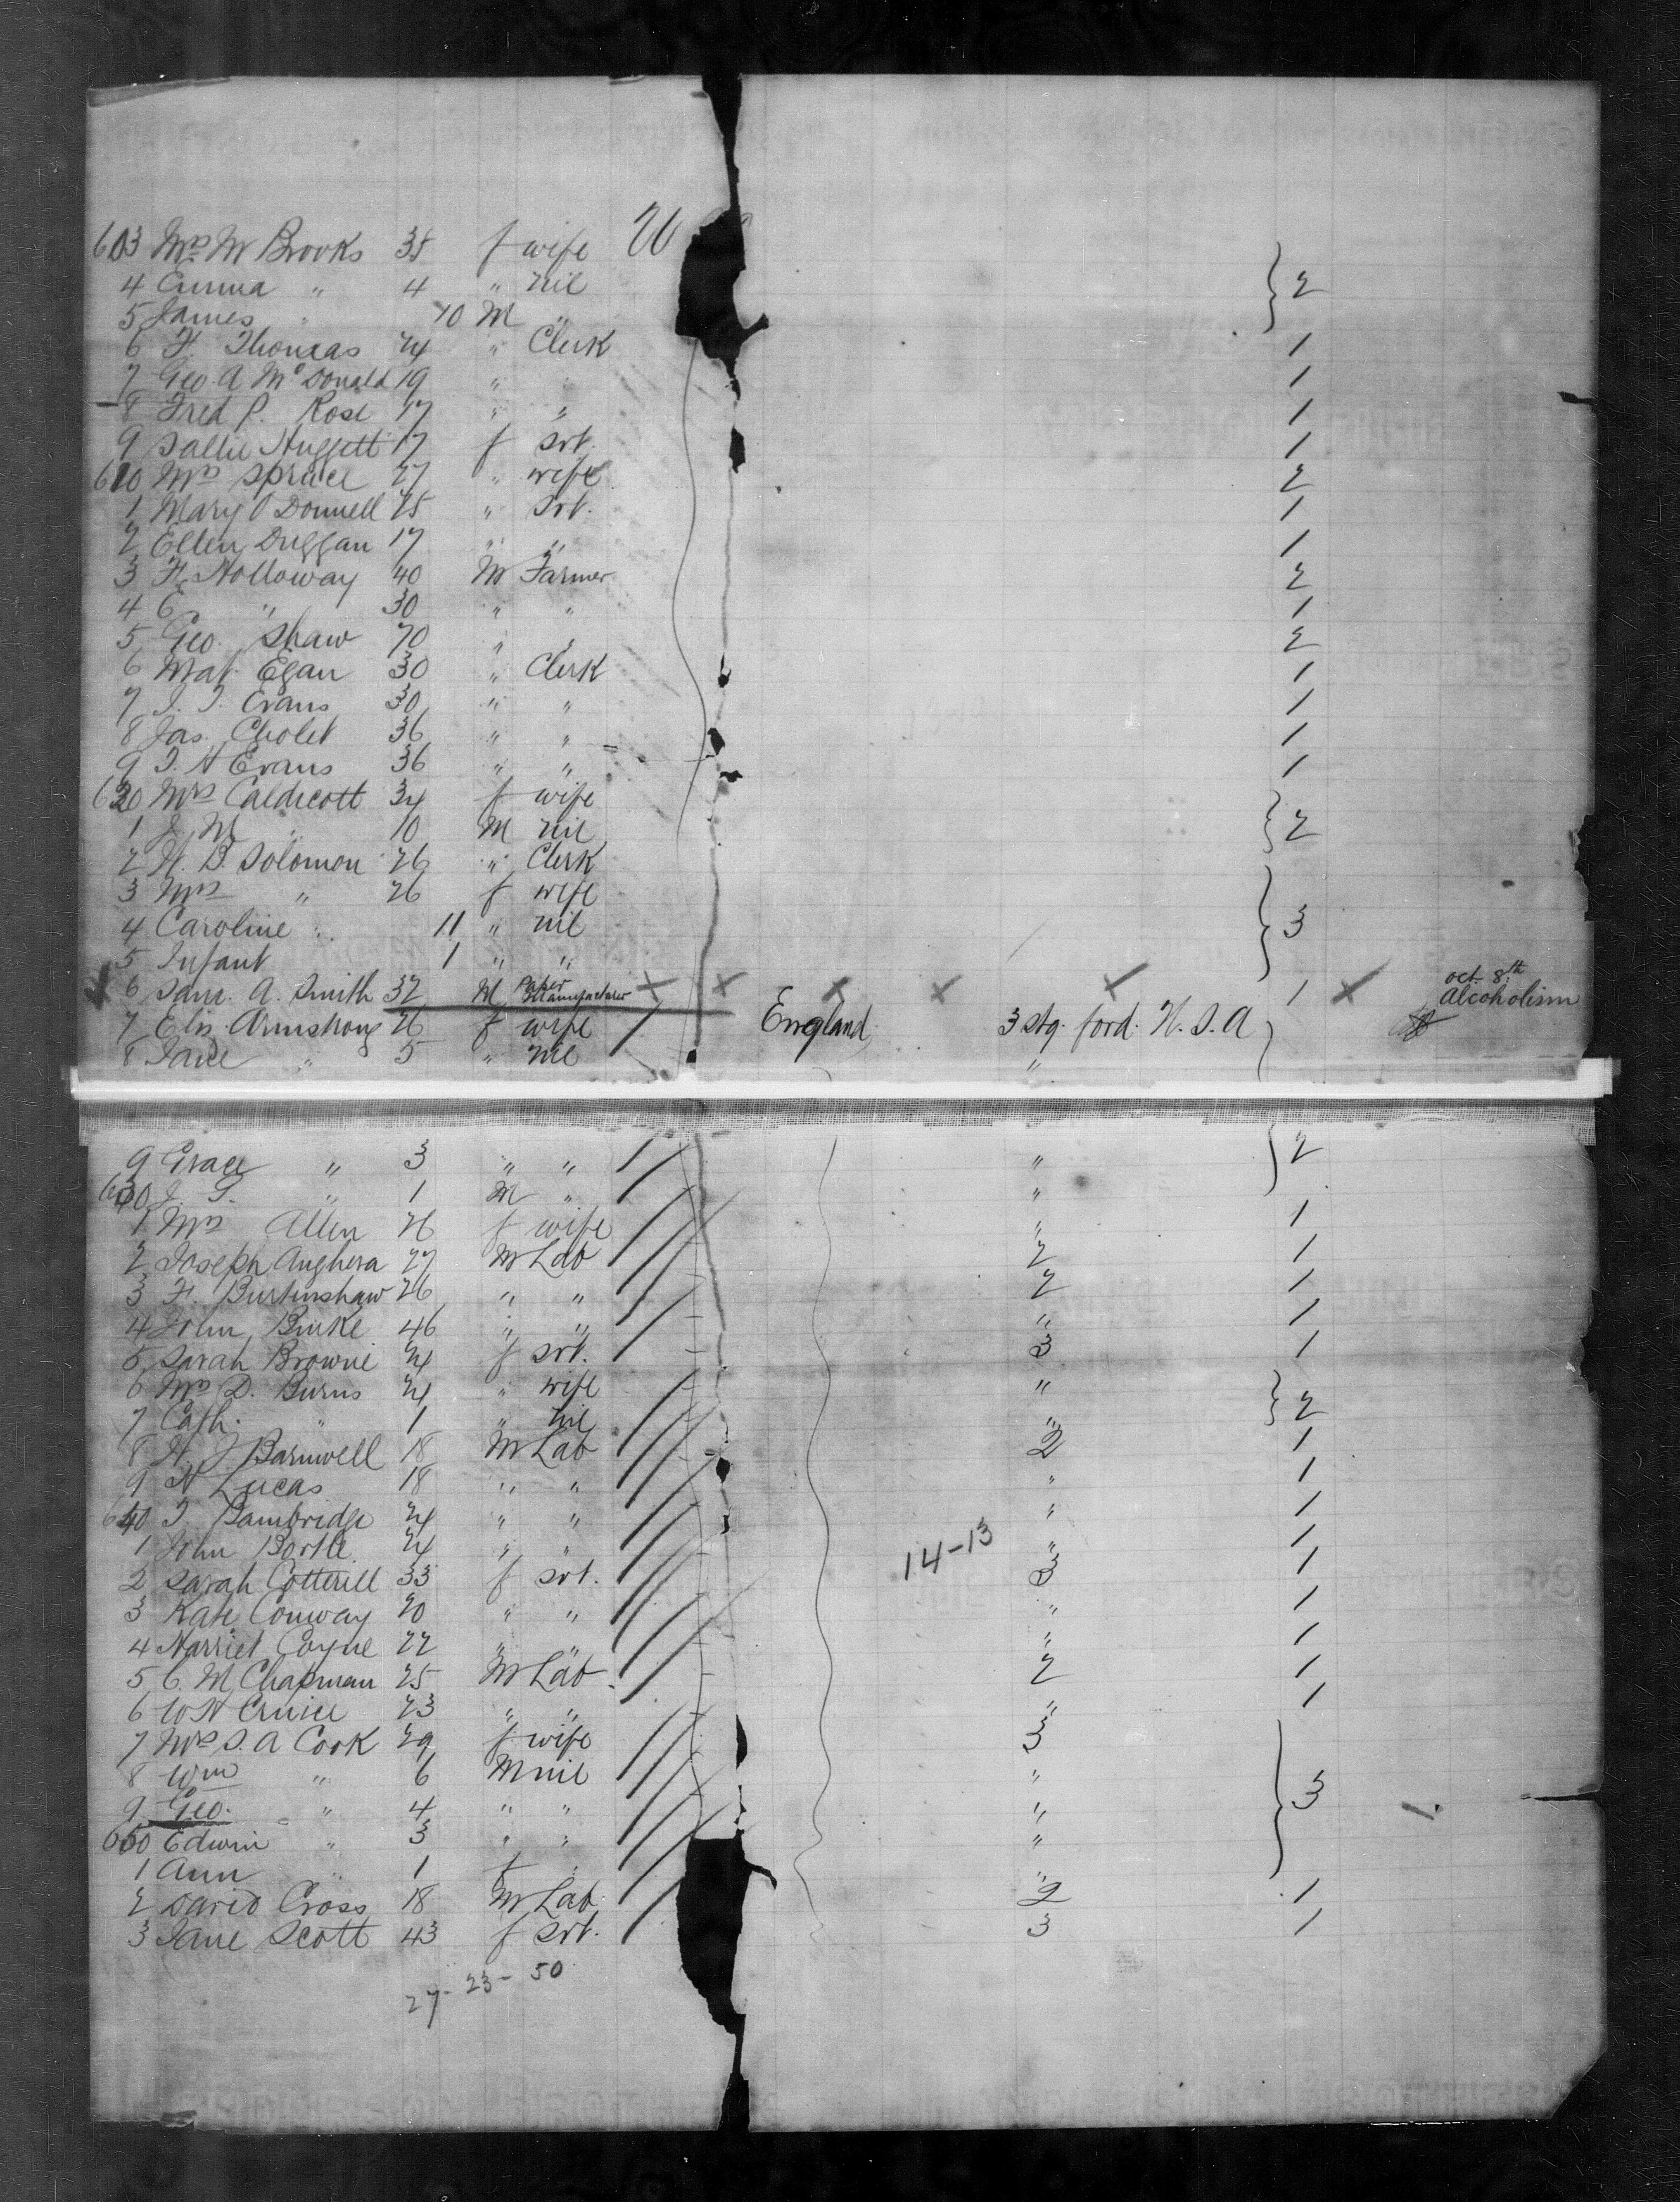 603 Mrs M Brooks 35 f wife
4 Emma " 4 " nil } 2
5 James " 10 M "
6 F. Thomas 24 " Clerk 1
7 Geo. A McDonald 19 " " 1
8 Fred P. Rose 17 " " 1
9 Sallie Huggett 17 f Srt. 1
610 Mrs Spruce 27 " wife 2
1 Mary O Donnell 25 " Srt. 1
2 Ellen Duggan 17 " " 1
3 F. Holloway 40 M Farmer 2
4 E " 30 " " 1
5 Geo. Shaw 20 " " 2
6 Mat. Egan 30 " Clerk 1
7 J. T. Evans 30 " " 1
8 Jas. Cholet 36 " " 1
9 T. H Evans 36 " " 1
620 Mrs Caldicott 34 f wife
1 J. M " 10 M nil } 2
2 H. B. Solomon 26 " Clerk
3 Mrs " 26 f wife
4 Caroline " 11 " nil } 3
5 Infant 1 " "
6 Sam. A. Smith 32 M Paper Manufacturer 1 Oct. 8th Alcoholism
7 Elis. Armstrong 26 f wife England 3 stg. ford. U. S. A
8 Jane " 5 " nil "
9 Grace " 3 " " " } 2
630 J. T. " 1 M " "
1 Mrs Allen 26 f wife " 1
2 Joseph Anghera 27 M Lab 2 1
3 F. Burtinshaw 26 " " 2 1
4 John Burke 46 " " " 1
5 Sarah Browne 24 f Srt. 3 1
6 Mrs D. Burns 24 " wife "
7 Cath. " 1 " nil " } 2
8 H. J. Barnwell 18 M Lab 2 1
9 H Lucas 18 " " " 1
640 T. Bambridge 24 " " " 1
1 John Bortle 24 " " " 1
14-13
2 Sarah Cotterill 33 f Srt. 3 1
3 Kate Conway 20 " " " 1
4 Harriet Coyne 22 " " " 1
5 C. M Chapman 25 M Lab. 2 1
6 W H Cruice 23 " " " 1
7 Mrs S. A Cook 29 f wife 3
8 Wm " 6 M nil "
9 Geo. " 4 " " " } 3
650 Edwin " 3 " " "
1 Ann " 1 f " "
2 David Cross 18 M Lab. 2 1
3 Jane Scott 43 f Srt. 3 1
27-23-50